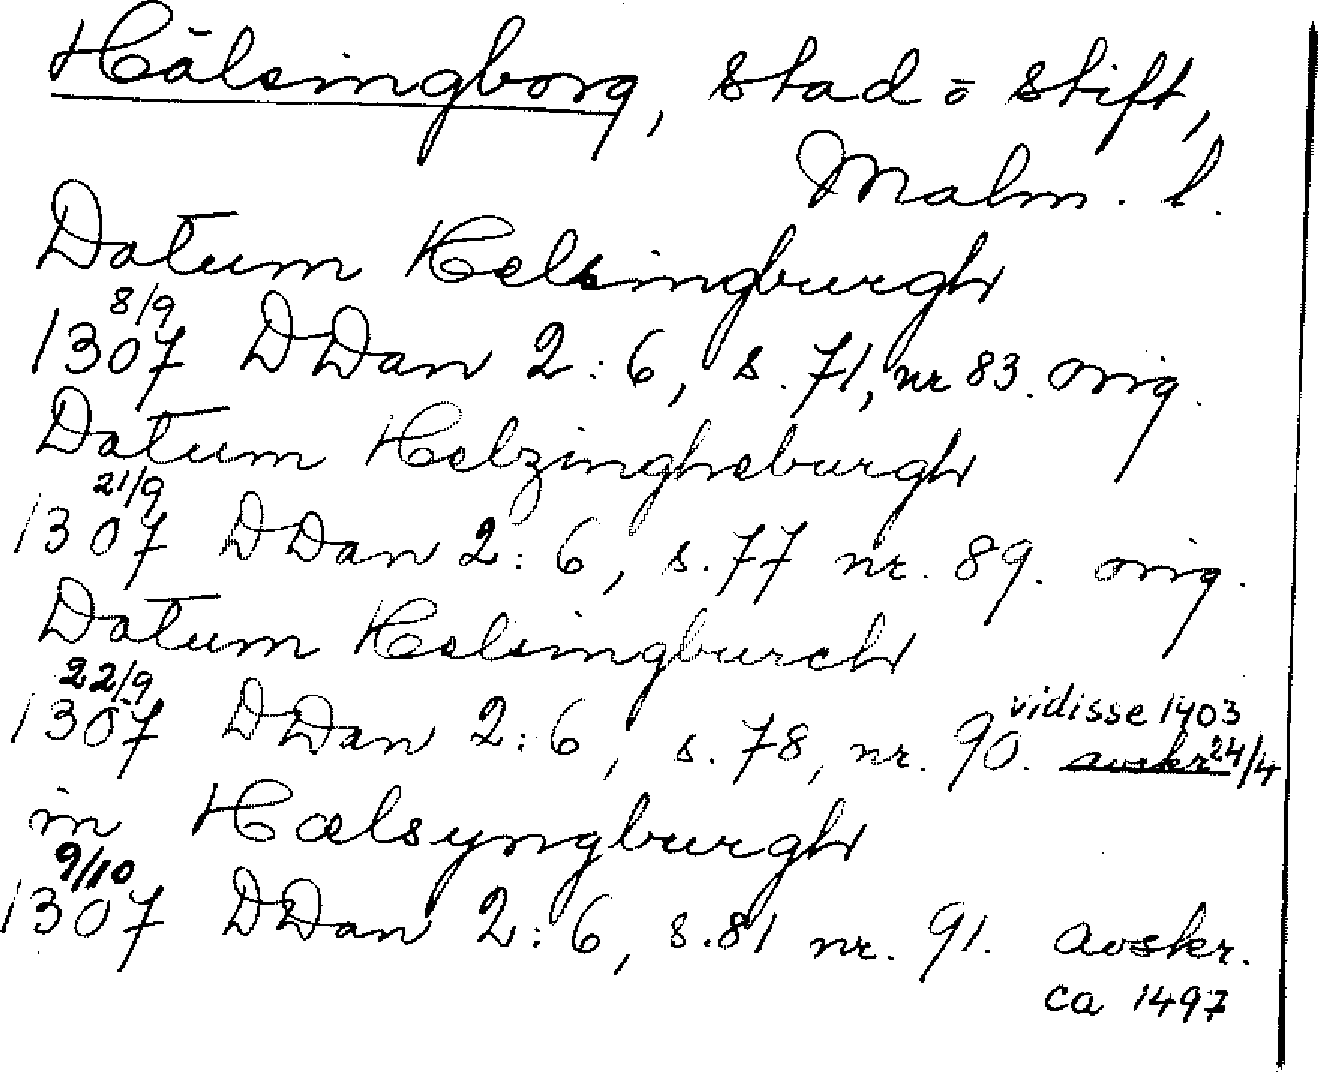 Hälsingborg, stad o stift,
Malm. l.
Datum Helsingburgh
8/9
1307 DDan 2:6, s. 71, nr 83. orig.
Datum Helzingheburgh
21/9
1307 DDan 2:6, s. 77 nr. 89. orig.
Datum Helsingburch
22/9
1307 DDan 2:6, s. 78, nr. 90. avskr 24/4
vidisse 1403
in Hælsyngburgh
9/10
1307 DDan 2:6, s. 81 nr. 91. avskr.
ca 1497